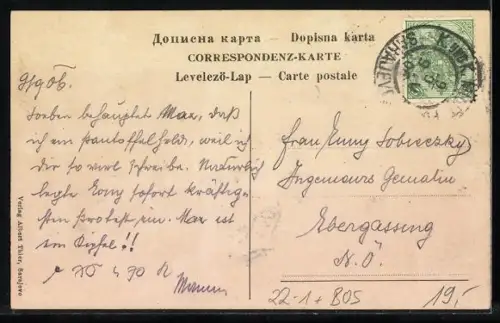 Дописна карта — Dopisna karta
CORRESPONDENZ-KARTE
Levelező-Lap — Carte postale
9/9 06.
Soeben behauptet Max, daß
ich ein Pantoffelheld, weil ich
dir so viel schreibe. Natürlich
legte Emy sofort kräftig-
sten Protest ein. Max ist
ein Zipfel!!
Frau Emy Sobieczky
Ingenieurs Gematin
Ebergassing
N.Ö.
Verlag Albert Thier, Sarajewo
22-1 + BOS
19,-